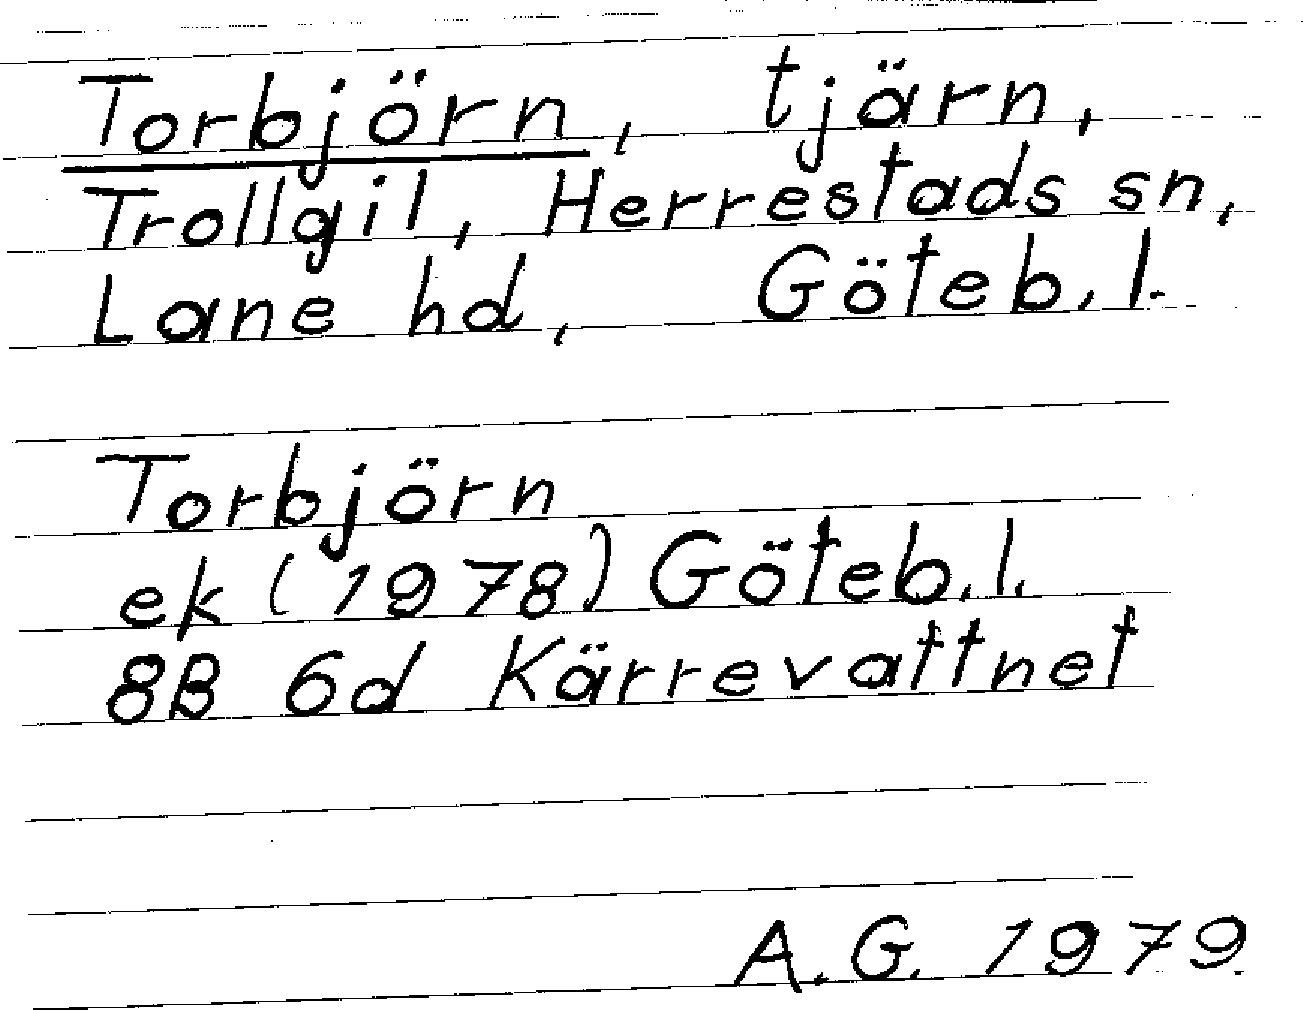 Torbjörn, tjärn,
Trollgil, Herrestads sn,
Lane hd, Göteb. l.
Torbjörn
ek (1978) Göteb. l.
8B 6d Kärrevattnet
A.G. 1979.